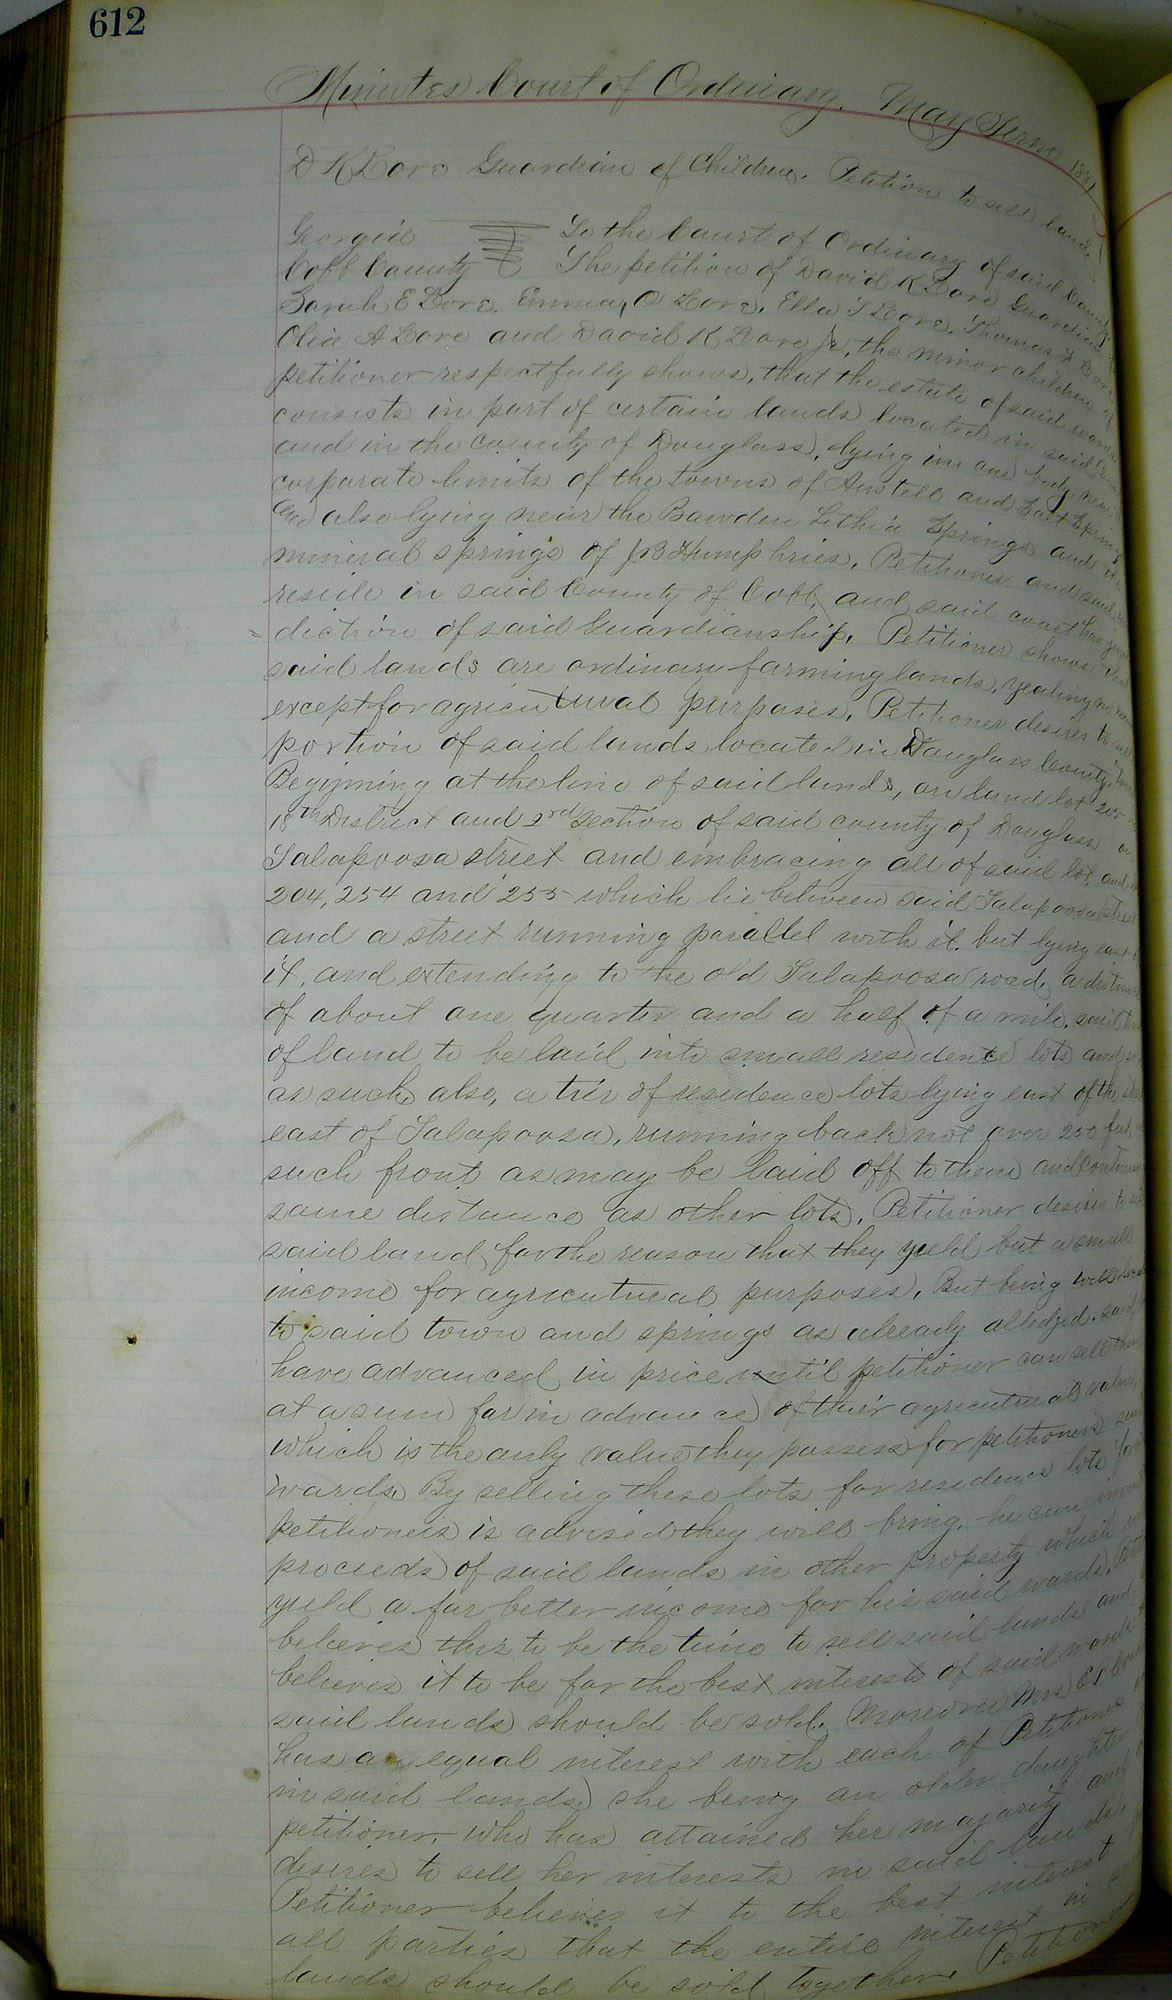 612
Minutes Court of Ordinary. May Term
D K Love Guardian of Children. Petition to sell land
Georgia To the Court of Ordinary of said County
Cobb County The petition of David K Love Guardian
Sarah E Love, Emma, O Love, Ella T Love, Thomas
Olin A Love and David K Love Jr, the minor children of
petitioner respectfully shows, that the estate of said wards
consists in part of certain lands located in said
and in the county of Douglass, lying in one body near
corporate limits of the towns of Austell and Salt Springs
and also lying near the Bowden Lithia Springs and
mineral springs of Humphries. Petitioner and said
reside in said County of Cobb, and said court has
=diction of said Guardianship. Petitioner shows
said lands are ordinary farming lands,
except for agricutural purposes, Petitioner desires to
portion of said lands located in Douglass County,
Beginning at the line of said lands, on land lot 205
18th District and 2nd Section of said county of Douglass
Talapoosa street and embracing all of said lot, and
204, 254 and 255 which lie between said Talapoosa street
and a street running parallel with it. but lying east
it, and extending to the old Talapoosa road, a distance
of about one quarter and a half of a mile, said
of land to be laid into small residence lots and
as such, also, a tier of residence lots lying east of the
east of Talapoosa, running back not over 250 feet,
such front as may be laid off to them and
same distance as other lots, Petitioner desires to
said land for the reason that they yield but a small
income for agricutural purposes, But being well
to said town and springs as already alledged, said
have advanced in price until petitioner can sell them
at a sum far in advance of their agricutural value,
which is the only value they possess for petitioners
wards, By selling these lots for residence lots for
petitioner is advised they will bring, he can
proceeds of said lands in other property which
yield a far better income for his said wards,
believes this to be the time to sell said lands and
believes it to be for the best interests of said wards
said lands should be sold, Moreover Mrs
has an equal interest with each of Petitioners
in said lands, she being an older daughter
petitioner, who has attained her majority and
desires to sell her interests in said lands,
Petitioner believes it to the best interest
all parties that the entire interest in
lands should be sold together. Petitioner